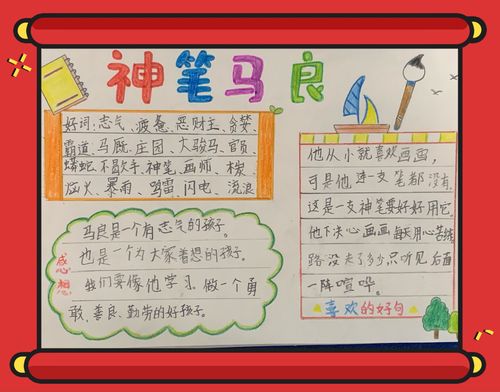 神笔马良
好词:志气、疲惫、恶财主、贪婪、
霸道、马厩、庄园、大骏马、官员、
蟒蛇、不敢、神笔、画师、
火、暴雨、鸣雷、闪电、流浪
马良是一个有志气的孩子。
也是一个为大家着想的孩子。
我们要像他学习。做一个勇
敢、善良、勤劳的好孩子。
感想
他从小就喜欢画画,
可是他连一支笔都没有
这是一支神笔要好好用它。
他下决心画画每天用心苦练
路没走了多少只听见后面
一阵喧哗。
喜欢的好句